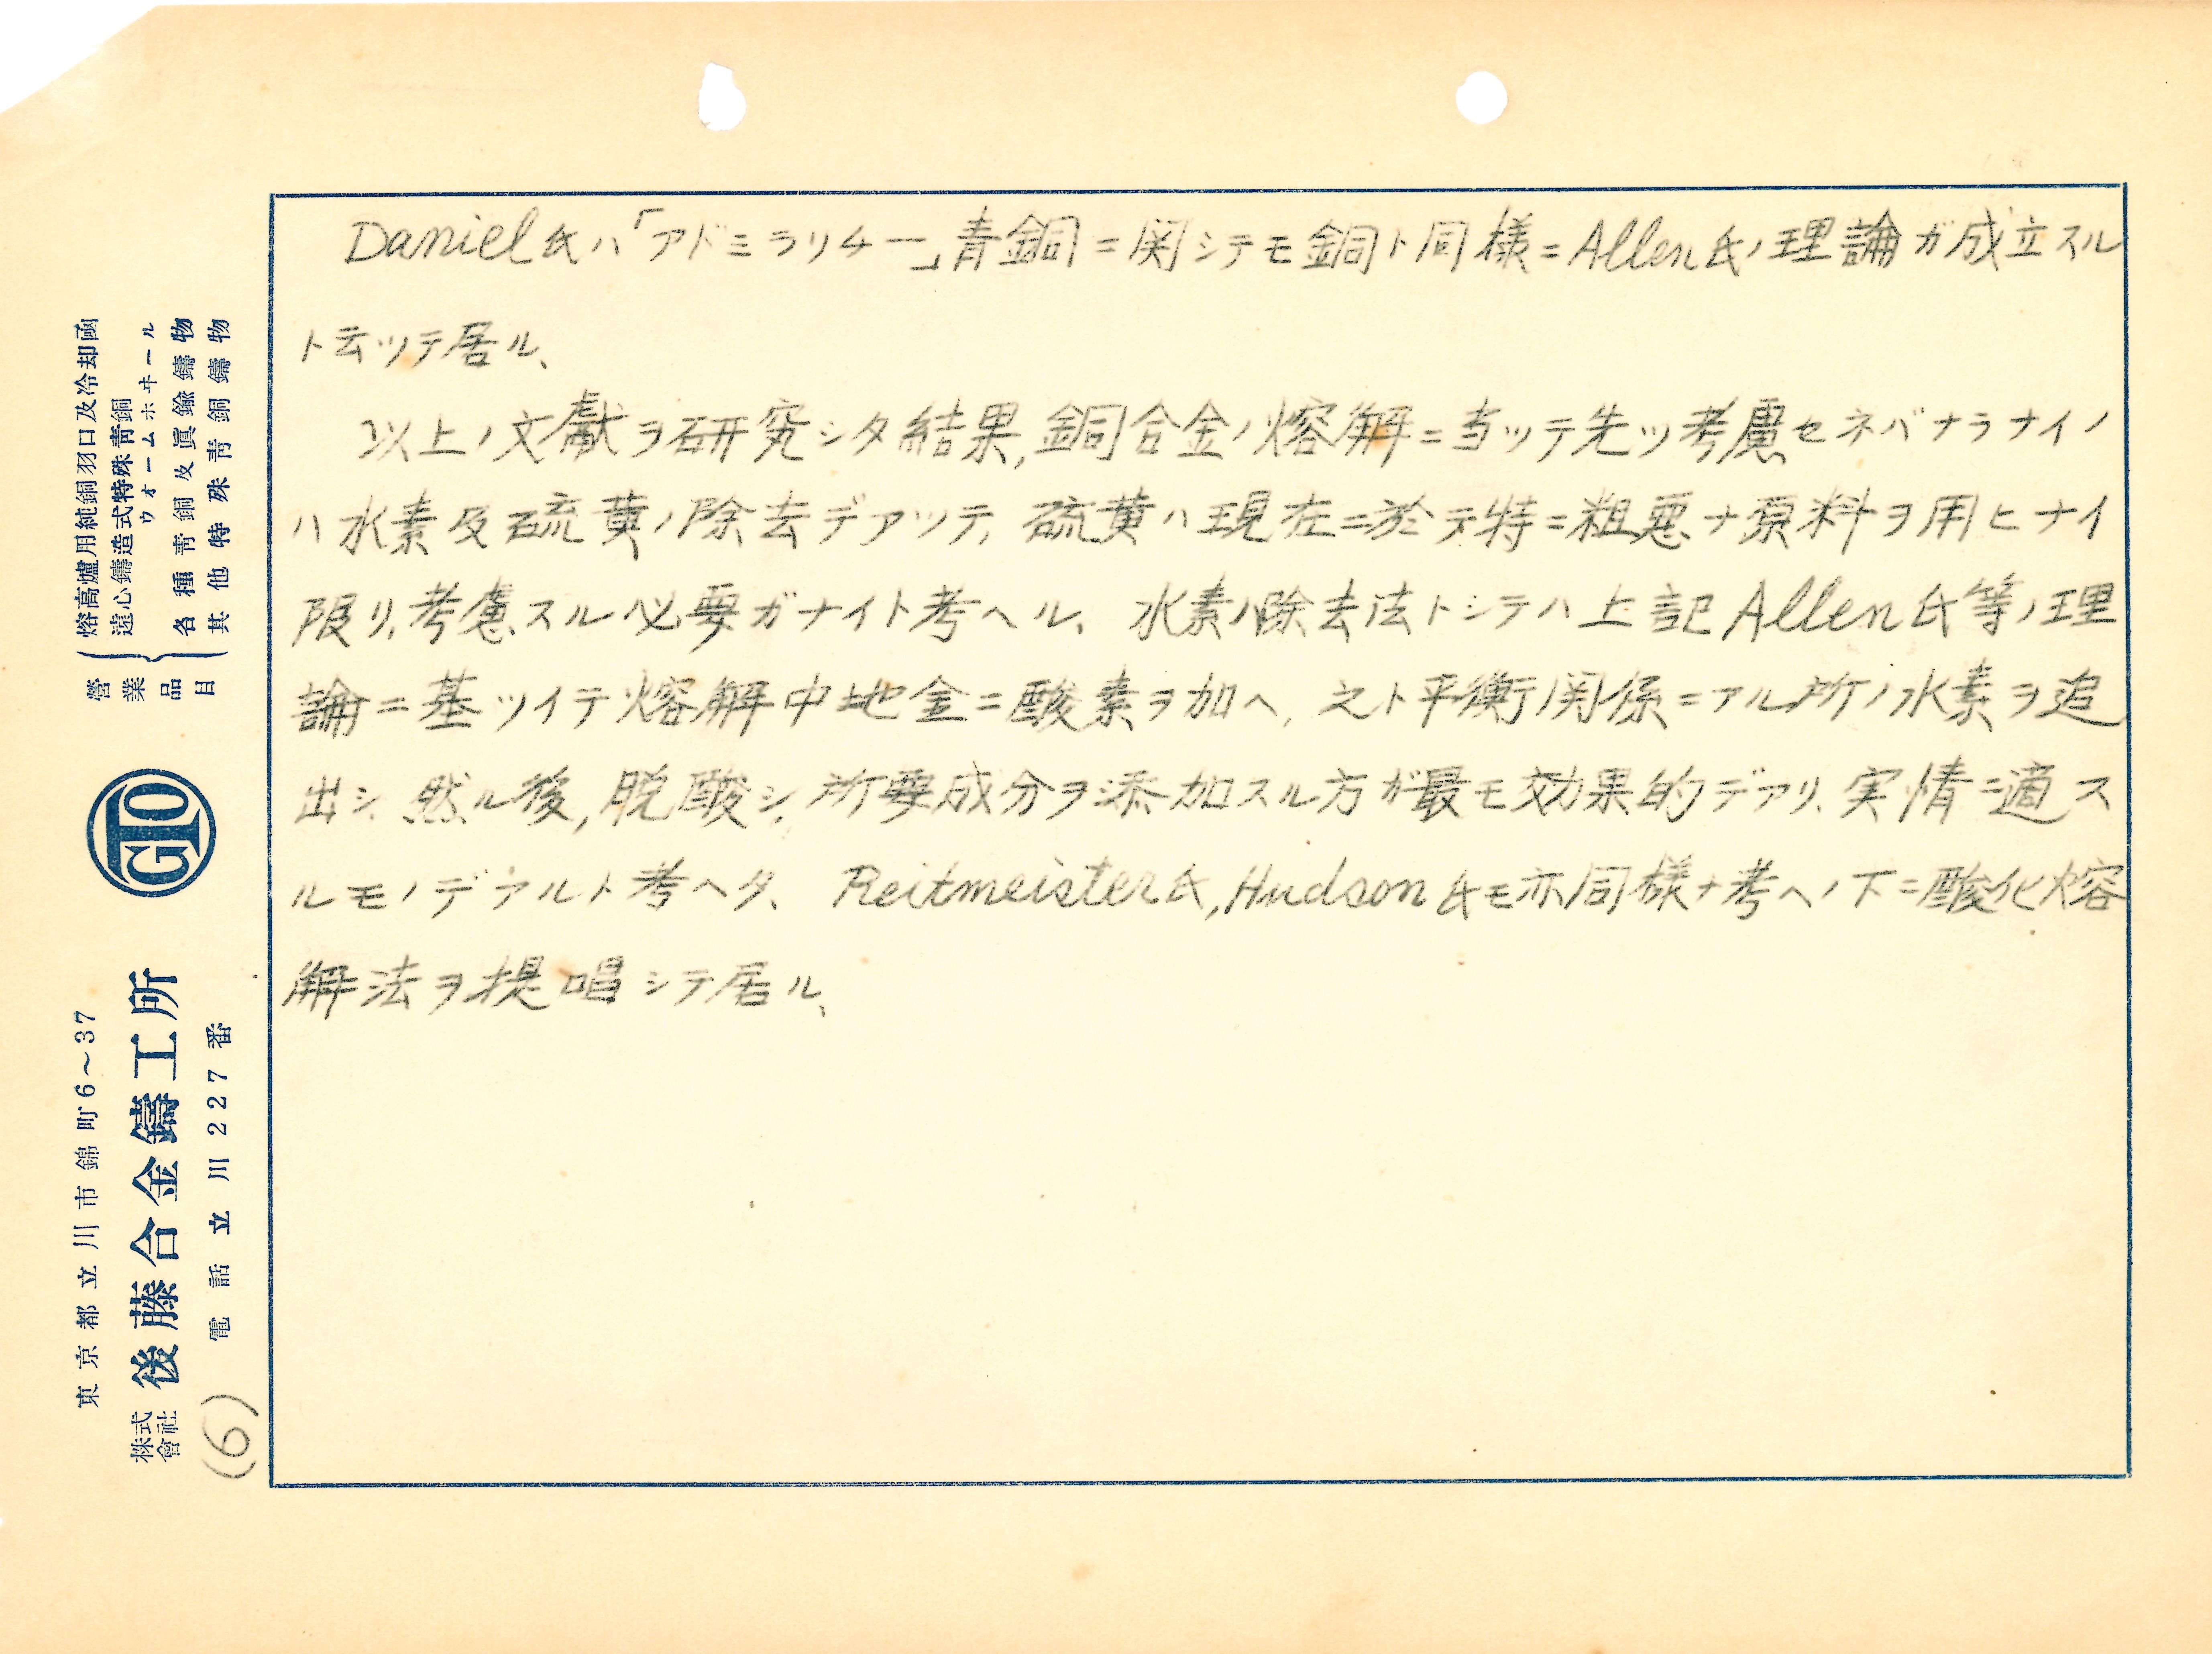 Daniel氏ハ「アドミラリチー」青銅ニ関シテモ銅ト同様ニAllen氏ノ理論ガ成立スル
ト云ッテ居ル、
以上ノ文献ヲ研究シタ結果,銅合金ノ熔解ニ当ッテ先ツ考慮セネバナラナイノ
ハ水素及硫黄ノ除去デアッテ,硫黄ハ現在ニ於テ特ニ粗悪ナ原料ヲ用ヒナイ
限リ,考慮スル必要ガナイト考ヘル、水素ノ除去法トシテハ上記Allen氏等ノ理
論ニ基ツイテ熔解中地金ニ酸素ヲ加ヘ,之ト平衡関係ニアル所ノ水素ヲ追
出シ、然ル後,脱酸シ,所要成分ヲ添加スル方ガ最モ効果的デアリ、実情ニ適ス
ルモノデアルト考ヘタ、Reitmeister氏,Hudson氏モ亦同様ナ考ヘノ下ニ酸化熔
解法ヲ提唱シテ居ル、
東京都立川市錦町6~37
株式會社 後藤合金鑄工所
電話立川227番
GTO
營業品目
熔高爐用純銅羽口及冷却函
遠心鑄造式特殊青銅ウォームホヰール
各種青銅及眞鍮鑄物
其他特殊青銅鑄物
(6)